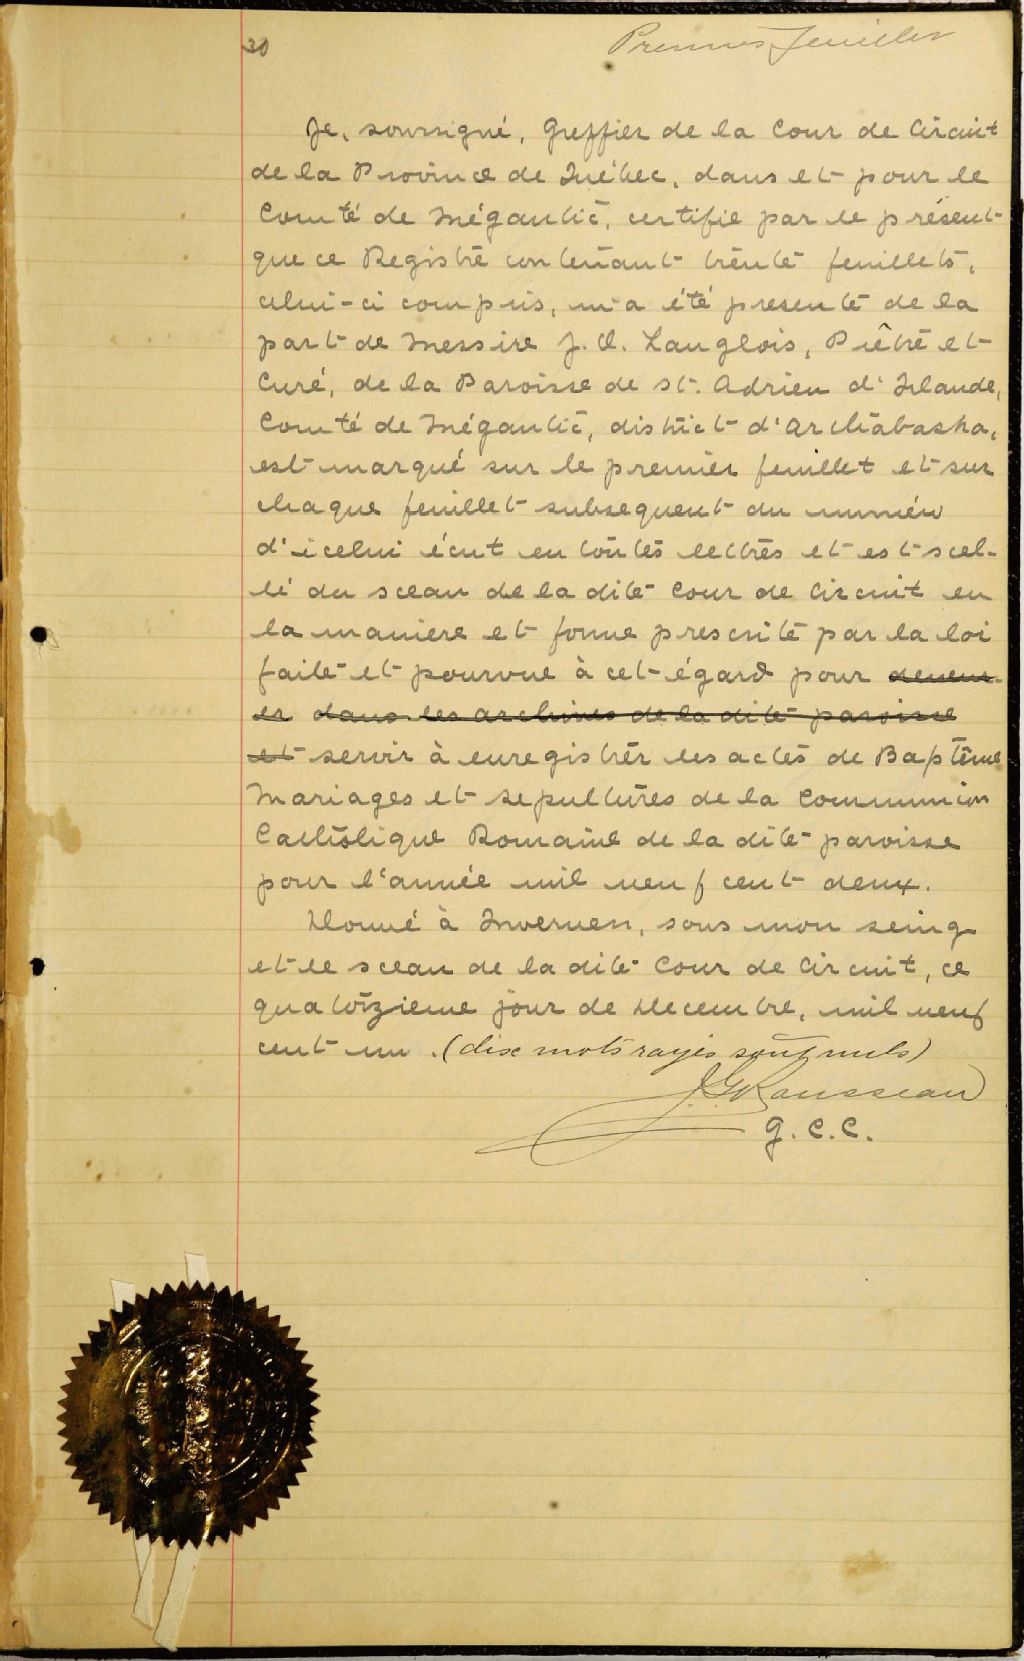 30
Premier feuillet
Je, soussigné, Greffier de la Cour de Circuit
de la Province de Québec, dans et pour le
Comté de Mégantic, certifie par le présent
que ce Registre contenant trente feuillets,
celui-ci compris, m'a été presenté de la
part de Messire J. O. Langlois, Prêtre et
Curé, de la Paroisse de St. Adrien d'Irlande,
Comté de Mégantic, district d'Arthabaska,
est marqué sur le premier feuillet et sur
chaque feuillet subsequent du numéro
d'icelui écrit en toutes lettres et est scel-
lé du sceau de la dite Cour de Circuit en
la maniere et forme prescrite par la loi
faite et pourvue à cet égard pour demeur-
er dans les archives de la dite paroisse
et servir à enregistrer les actes de Baptême
Mariages et sepultures de la Communion
Catholique Romaine de la dite paroisse
pour l'année mil neuf cent deux.
Donné à Inverness, sous mon seing
et le sceau de la dite Cour de Circuit, ce
quatorzieme jour de Decembre, mil neuf
cent un. (dix mots rayés sont nuls)
J. G. Rousseau
G. C. C.